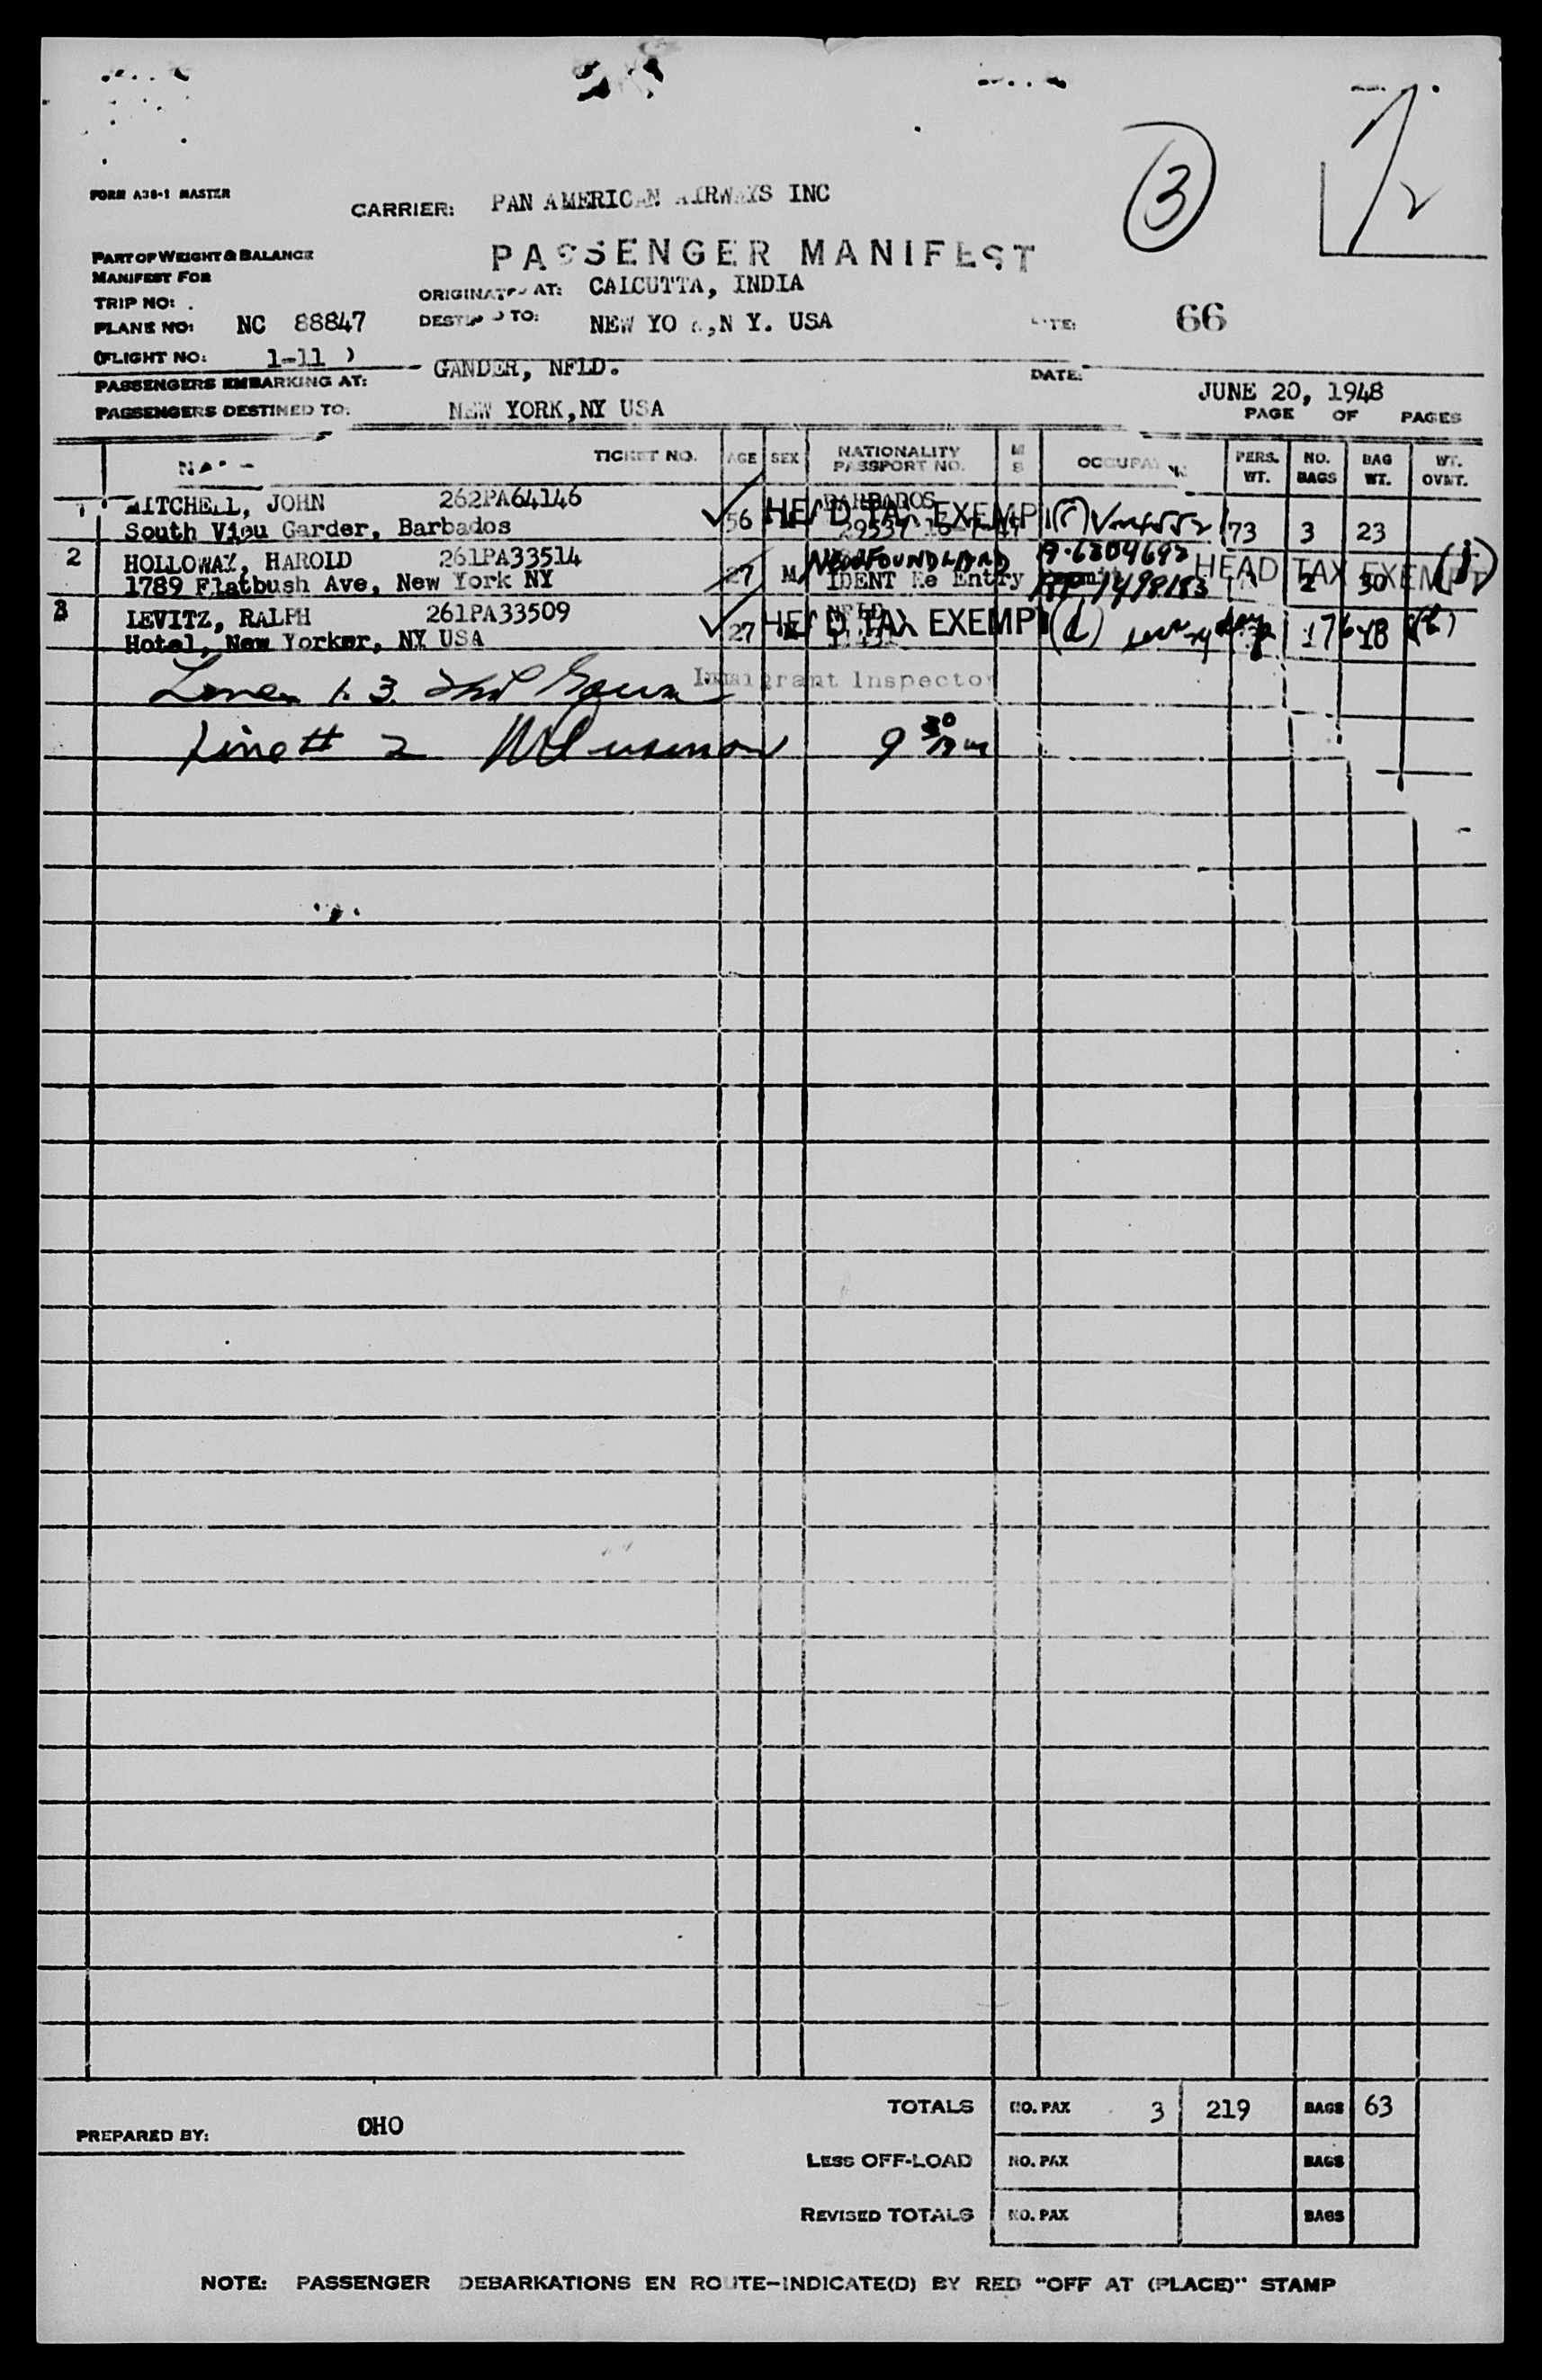 3
1/2
FORM A38-1 MASTER
CARRIER: PAN AMERICAN AIRWAYS INC
PASSENGER MANIFEST
PART OF WEIGHT & BALANCE
MANIFEST FOR
ORIGINATED AT: CALCUTTA, INDIA
TRIP NO:
PLANE NO: NC 88847
DESTINED TO: NEW YORK, N Y. USA
DATE: 66
(FLIGHT NO: 1-11 )
PASSENGERS EMBARKING AT: GANDER, NFLD.
DATE: JUNE 20, 1948
PASSENGERS DESTINED TO: NEW YORK, NY USA
PAGE OF PAGES
NAME TICKET NO. AGE SEX NATIONALITY PASSPORT NO. M S OCCUPATION PERS. WT. NO. BAGS BAG WT. WT. OVWT.
1 MITCHELL, JOHN 262PA64146 BARBADOS
South Vieu Garder, Barbados 56 HEAD TAX EXEMPT 73 3 23
2 HOLLOWAY, HAROLD 261PA33514 NEWFOUNDLAND A-6804692 HEAD TAX EXEMPT (j)
1789 Flatbush Ave, New York NY 27 M IDENT Re Entry 1498183 2 30
3 LEVITZ, RALPH 261PA33509 NFLD
Hotel, New Yorker, NY USA 27 HEAD TAX EXEMPT (d)
Immigrant Inspector
Line # 2 9 30
TOTALS NO. PAX 3 219 BAGS 63
PREPARED BY: OHO
LESS OFF-LOAD NO. PAX BAGS
REVISED TOTALS NO. PAX BAGS
NOTE: PASSENGER DEBARKATIONS EN ROUTE-INDICATE(D) BY RED "OFF AT (PLACE)" STAMP